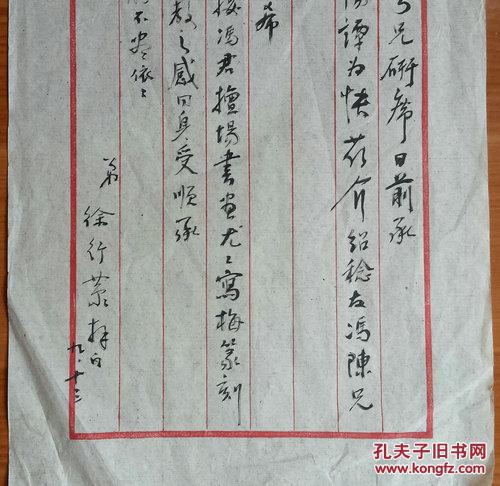 兄研席日前承
譚为快茲介紹稔友馮陳兄
希
接馮君擅場書画尤〻寫梅篆刻
教之感同身受順承
不尽依〻
弟
徐行
拜白
九·十三
孔夫子旧书网
www.kongfz.com